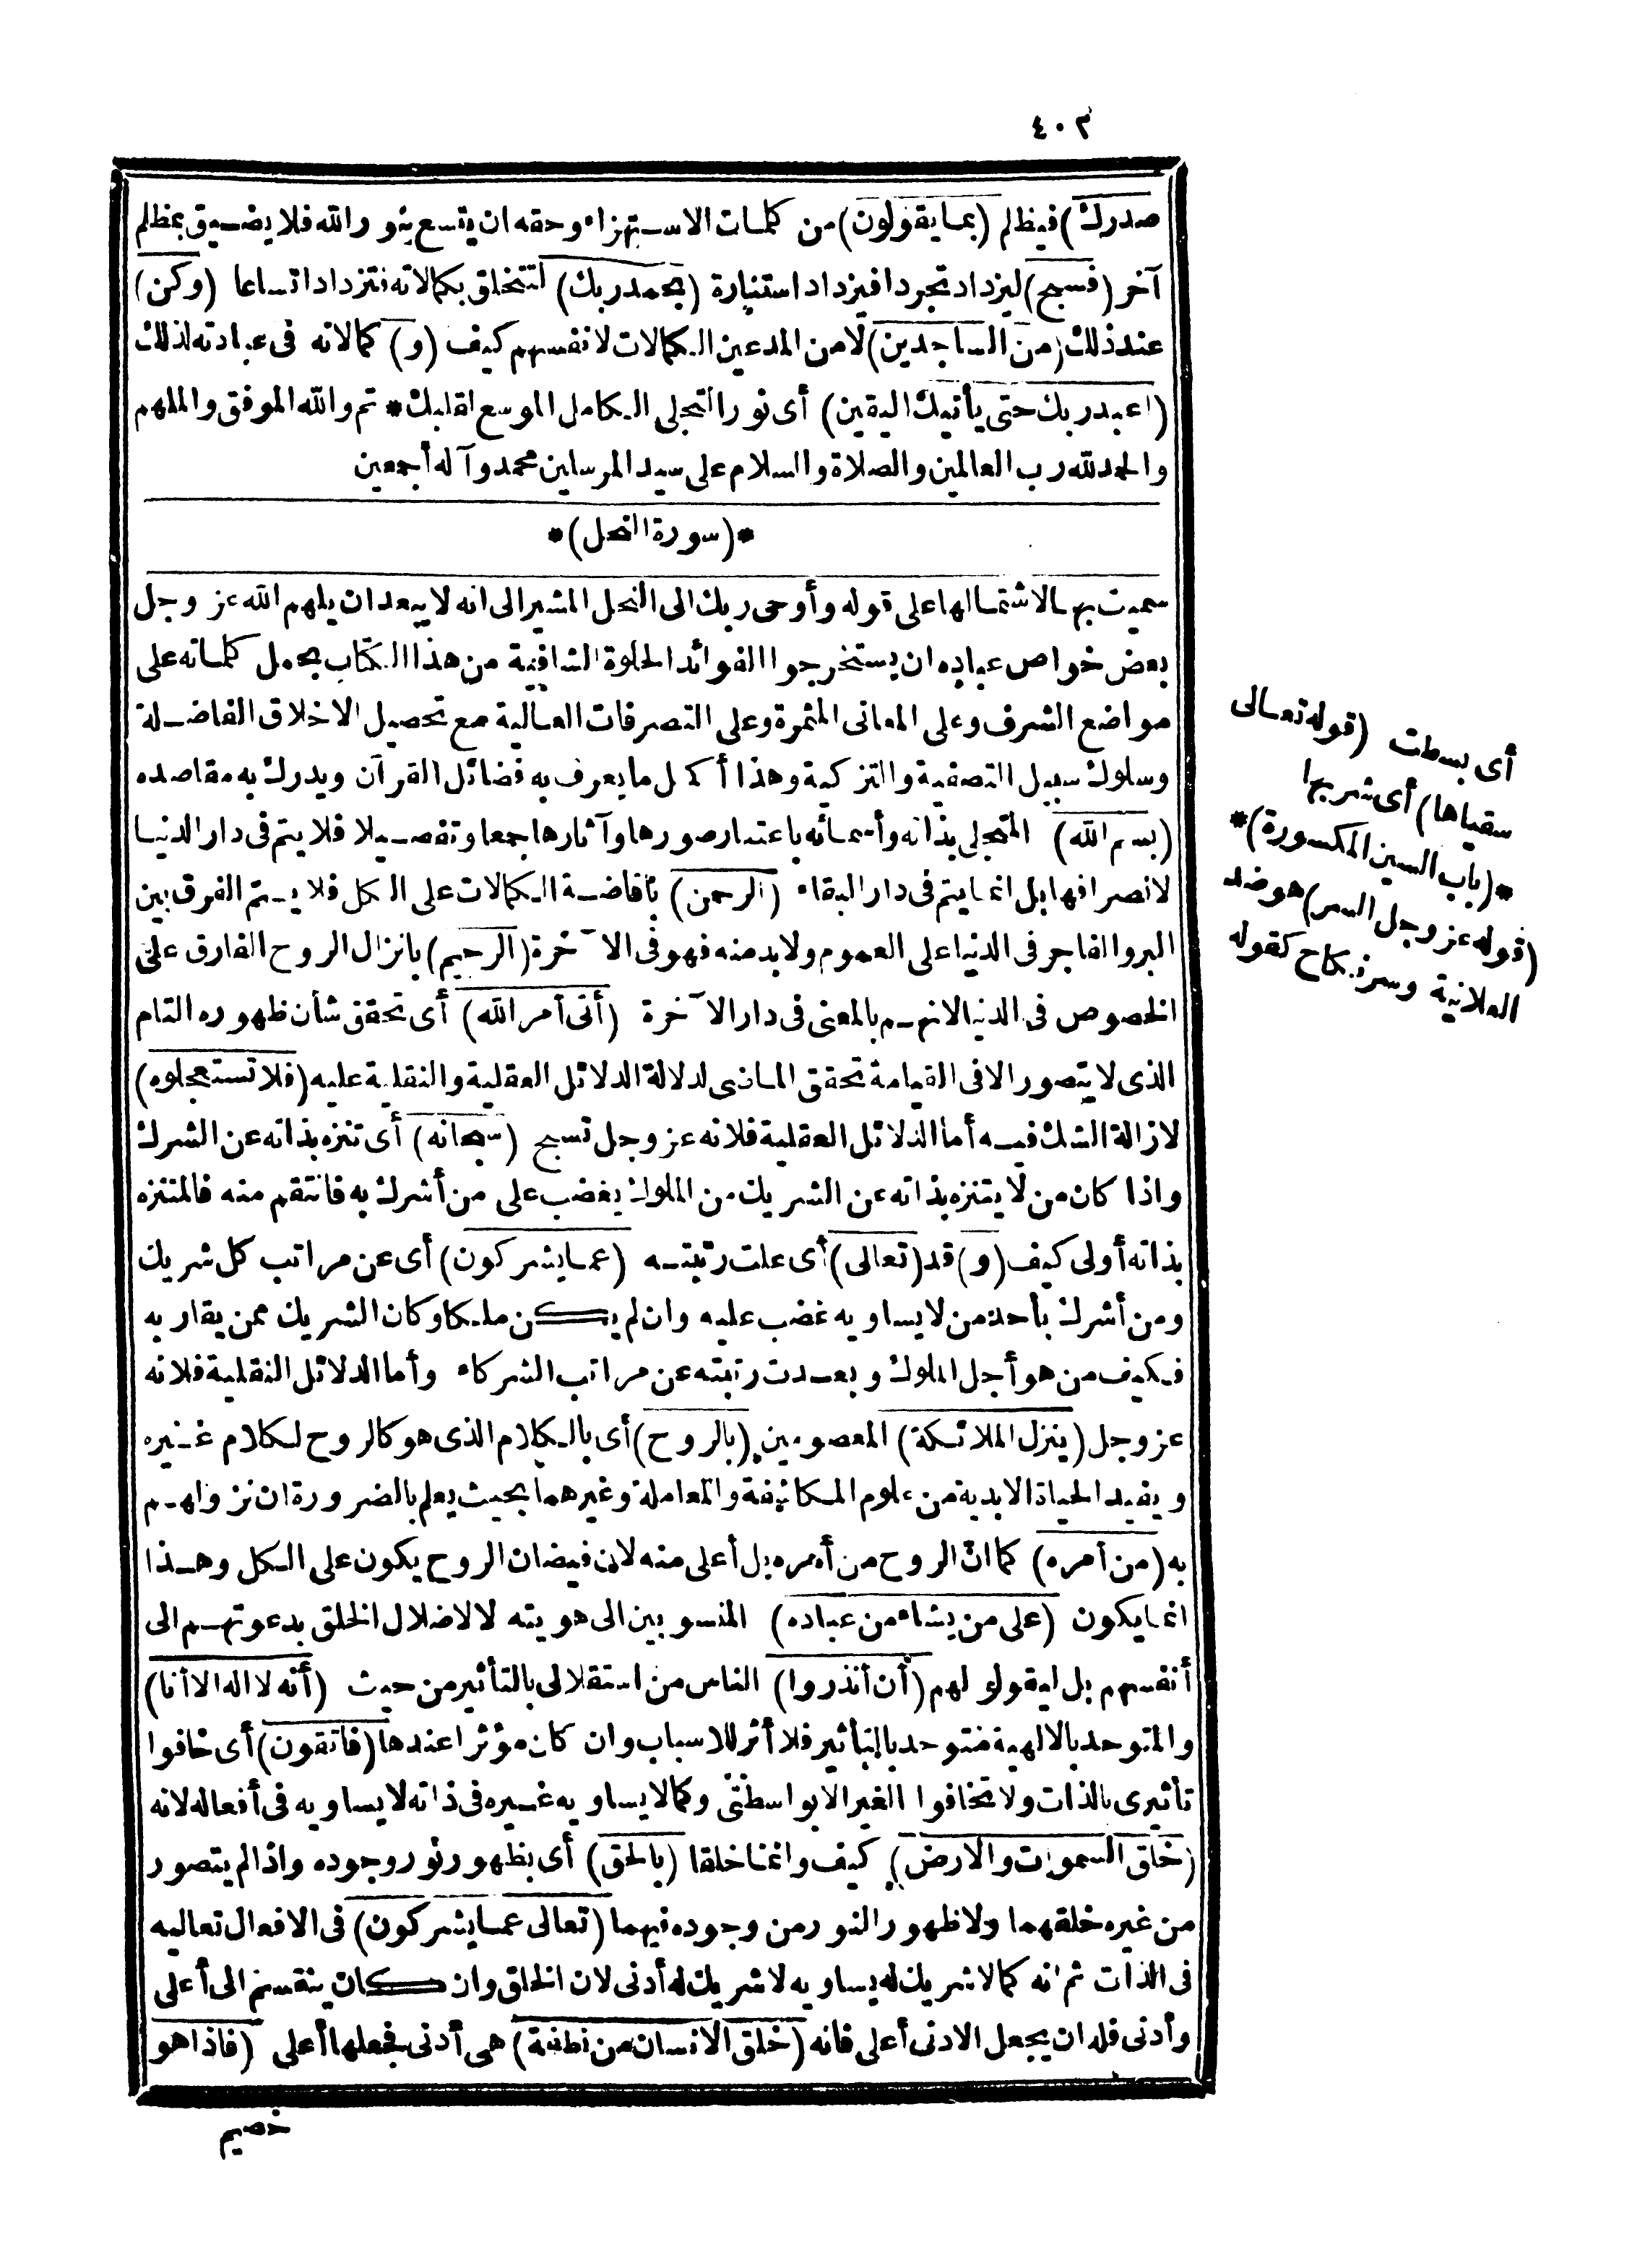 ٤٠٣
صدرك) فيظلم (بما يقولون) من كلمات الاستهزاء وحقه ان يتسع بنور الله فلا يضيق بمظلم
آخر (فسبح) ليزداد تجردا فيزداد استنارة (بحمد ربك) لتتخلق بكمالاته فتزداد اتساعا (وكن)
عند ذلك (من الساجدين) لا من المدعين الكمالات لانفسهم كيف (و) كمالاته فى عبادته لذلك
(اعبد ربك حتى يأتيك اليقين) أى نور التجلى الكامل الموسع لقلبك * تم والله الموفق والملهم
والحمد لله رب العالمين والصلاة والسلام على سيد المرسلين محمد وآله أجمعين
*(سورة النحل)*
سميت بها لاشتمالها على قوله وأوحى ربك الى النحل المشير الى انه لا يبعد ان يلهم الله عز وجل
بعض خواص عباده ان يستخرجوا الفوائد الحلوة الشافية من هذا الكتاب بحمل كلماته على
مواضع الشرف وعلى المعانى المثمرة وعلى التصرفات العالية مع تحصيل الاخلاق الفاضلة
وسلوك سبيل التصفية والتزكية وهذا أكمل ما يعرف به فضائل القرآن ويدرك به مقاصده
(بسم الله) المتجلى بذاته وأسمائه باعتبار صورها وآثارها جمعا وتفصيلا فلا يتم فى دار الدنيا
لانصرافها بل انما يتم فى دار البقاء (الرحمن) بافاضة الكمالات على الكل فلا يتم الفرق بين
البر والفاجر فى الدنيا على العموم ولا بد منه فهو فى الآخرة (الرحيم) بانزال الروح الفارق على
الخصوص فى الدنيا لانهم بالمعنى فى دار الآخرة (أتى أمر الله) أى تحقق شأن ظهوره التام
الذى لا يتصور الا فى القيامة تحقق الماضى لدلالة الدلائل العقلية والنقلية عليه (فلا تستعجلوه)
لازالة الشك فيه أما الدلائل العقلية فلانه عز وجل تسبح (سبحانه) أى تنزه بذاته عن الشرك
واذا كان من لا يتنزه بذاته عن الشريك من الملوك يغضب على من أشرك به فانتقم منه فالمتنزه
بذاته أولى كيف (و) قد (تعالى) أى علت رتبته (عما يشركون) أى عن مراتب كل شريك
ومن أشرك بأحد من لا يساويه غضب عليه وان لم يكن ملكا وكان الشريك ممن يقاربه
فكيف من هو أجل الملوك وبعدت رتبته عن مراتب الشركاء وأما الدلائل النقلية فلانه
عز وجل (ينزل الملائكة) المعصومين (بالروح) أى بالكلام الذى هو كالروح لكلام غيره
ويفيد الحياة الابدية من علوم المكاشفة والمعاملة وغيرهما بحيث يعلم بالضرورة ان نزولهم
به (من أمره) كما ان الروح من أمره بل أعلى منه لان فيضان الروح يكون على الكل وهذا
انما يكون (على من يشاء من عباده) المنسوبين الى هويته لا لاضلال الخلق بدعوتهم الى
أنفسهم بل ليقولوا لهم (أن أنذروا) الناس من استقلالى بالتأثير من حيث (أنه لا اله الا أنا)
والمتوحد بالالهية متوحد بالتأثير فلا أثر للاسباب وان كان مؤثرا عندها (فاتقون) أى خافوا
تأثيرى بالذات ولا تخافوا الغير الا بواسطتى وكما لا يساويه غيره فى ذاته لا يساويه فى أفعاله لانه
(خلق السموات والارض) كيف وانما خلقا (بالحق) أى بظهور نور وجوده واذا لم يتصور
من غيره خلقهما ولا ظهور النور من وجوده فيهما (تعالى عما يشركون) فى الافعال تعاليه
فى الذات ثم انه كما لا شريك له يساويه لا شريك له أدنى لان الخلق وان كان ينقسم الى أعلى
وأدنى فله ان يجعل الادنى أعلى فانه (خلق الانسان من نطفة) هى أدنى فجعلها أعلى (فاذا هو
خصيم
أى بسطت (قوله تعالى
سقياها) أى شربها
*(باب السين المكسورة)*
(قوله عز وجل السر) هو ضد
العلانية وسر نكاح كقوله